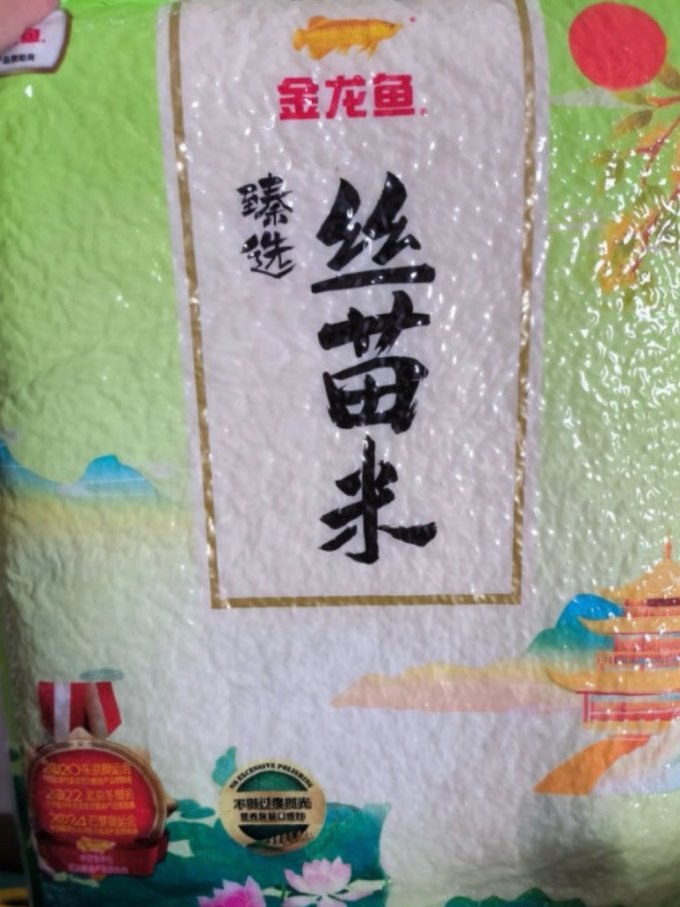 鱼
金龙鱼
臻选
丝苗米
2020东京奥运会
2022北京冬奥会
2024巴黎奥运会
NO EXCESSIVE POLISHING
不做过度抛光
营养保留口感好